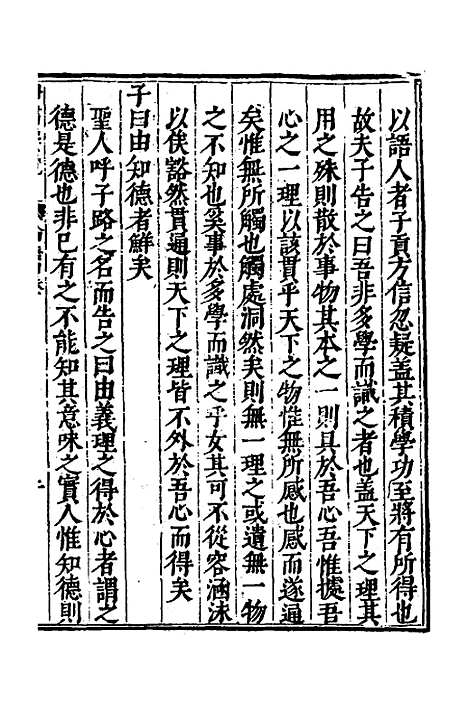 以語人者子貢方信忽疑盖其積學功至將有所得也
故夫子告之曰吾非多學而識之者也盖天下之理其
用之殊則散於事物其本之一則具於吾心吾惟據吾
心之一理以該貫乎天下之物惟無所感也感而遂通
矣惟無所觸也觸處洞然矣則無一理之或遺無一物
之不知也奚事於多學而識之乎女其可不從容涵泳
以俟豁然貫通則天下之理皆不外於吾心而得矣
子曰由知德者鮮矣
聖人呼子路之名而告之曰由義理之得於心者謂之
德是德也非已有之不能知其意味之實人惟知德則